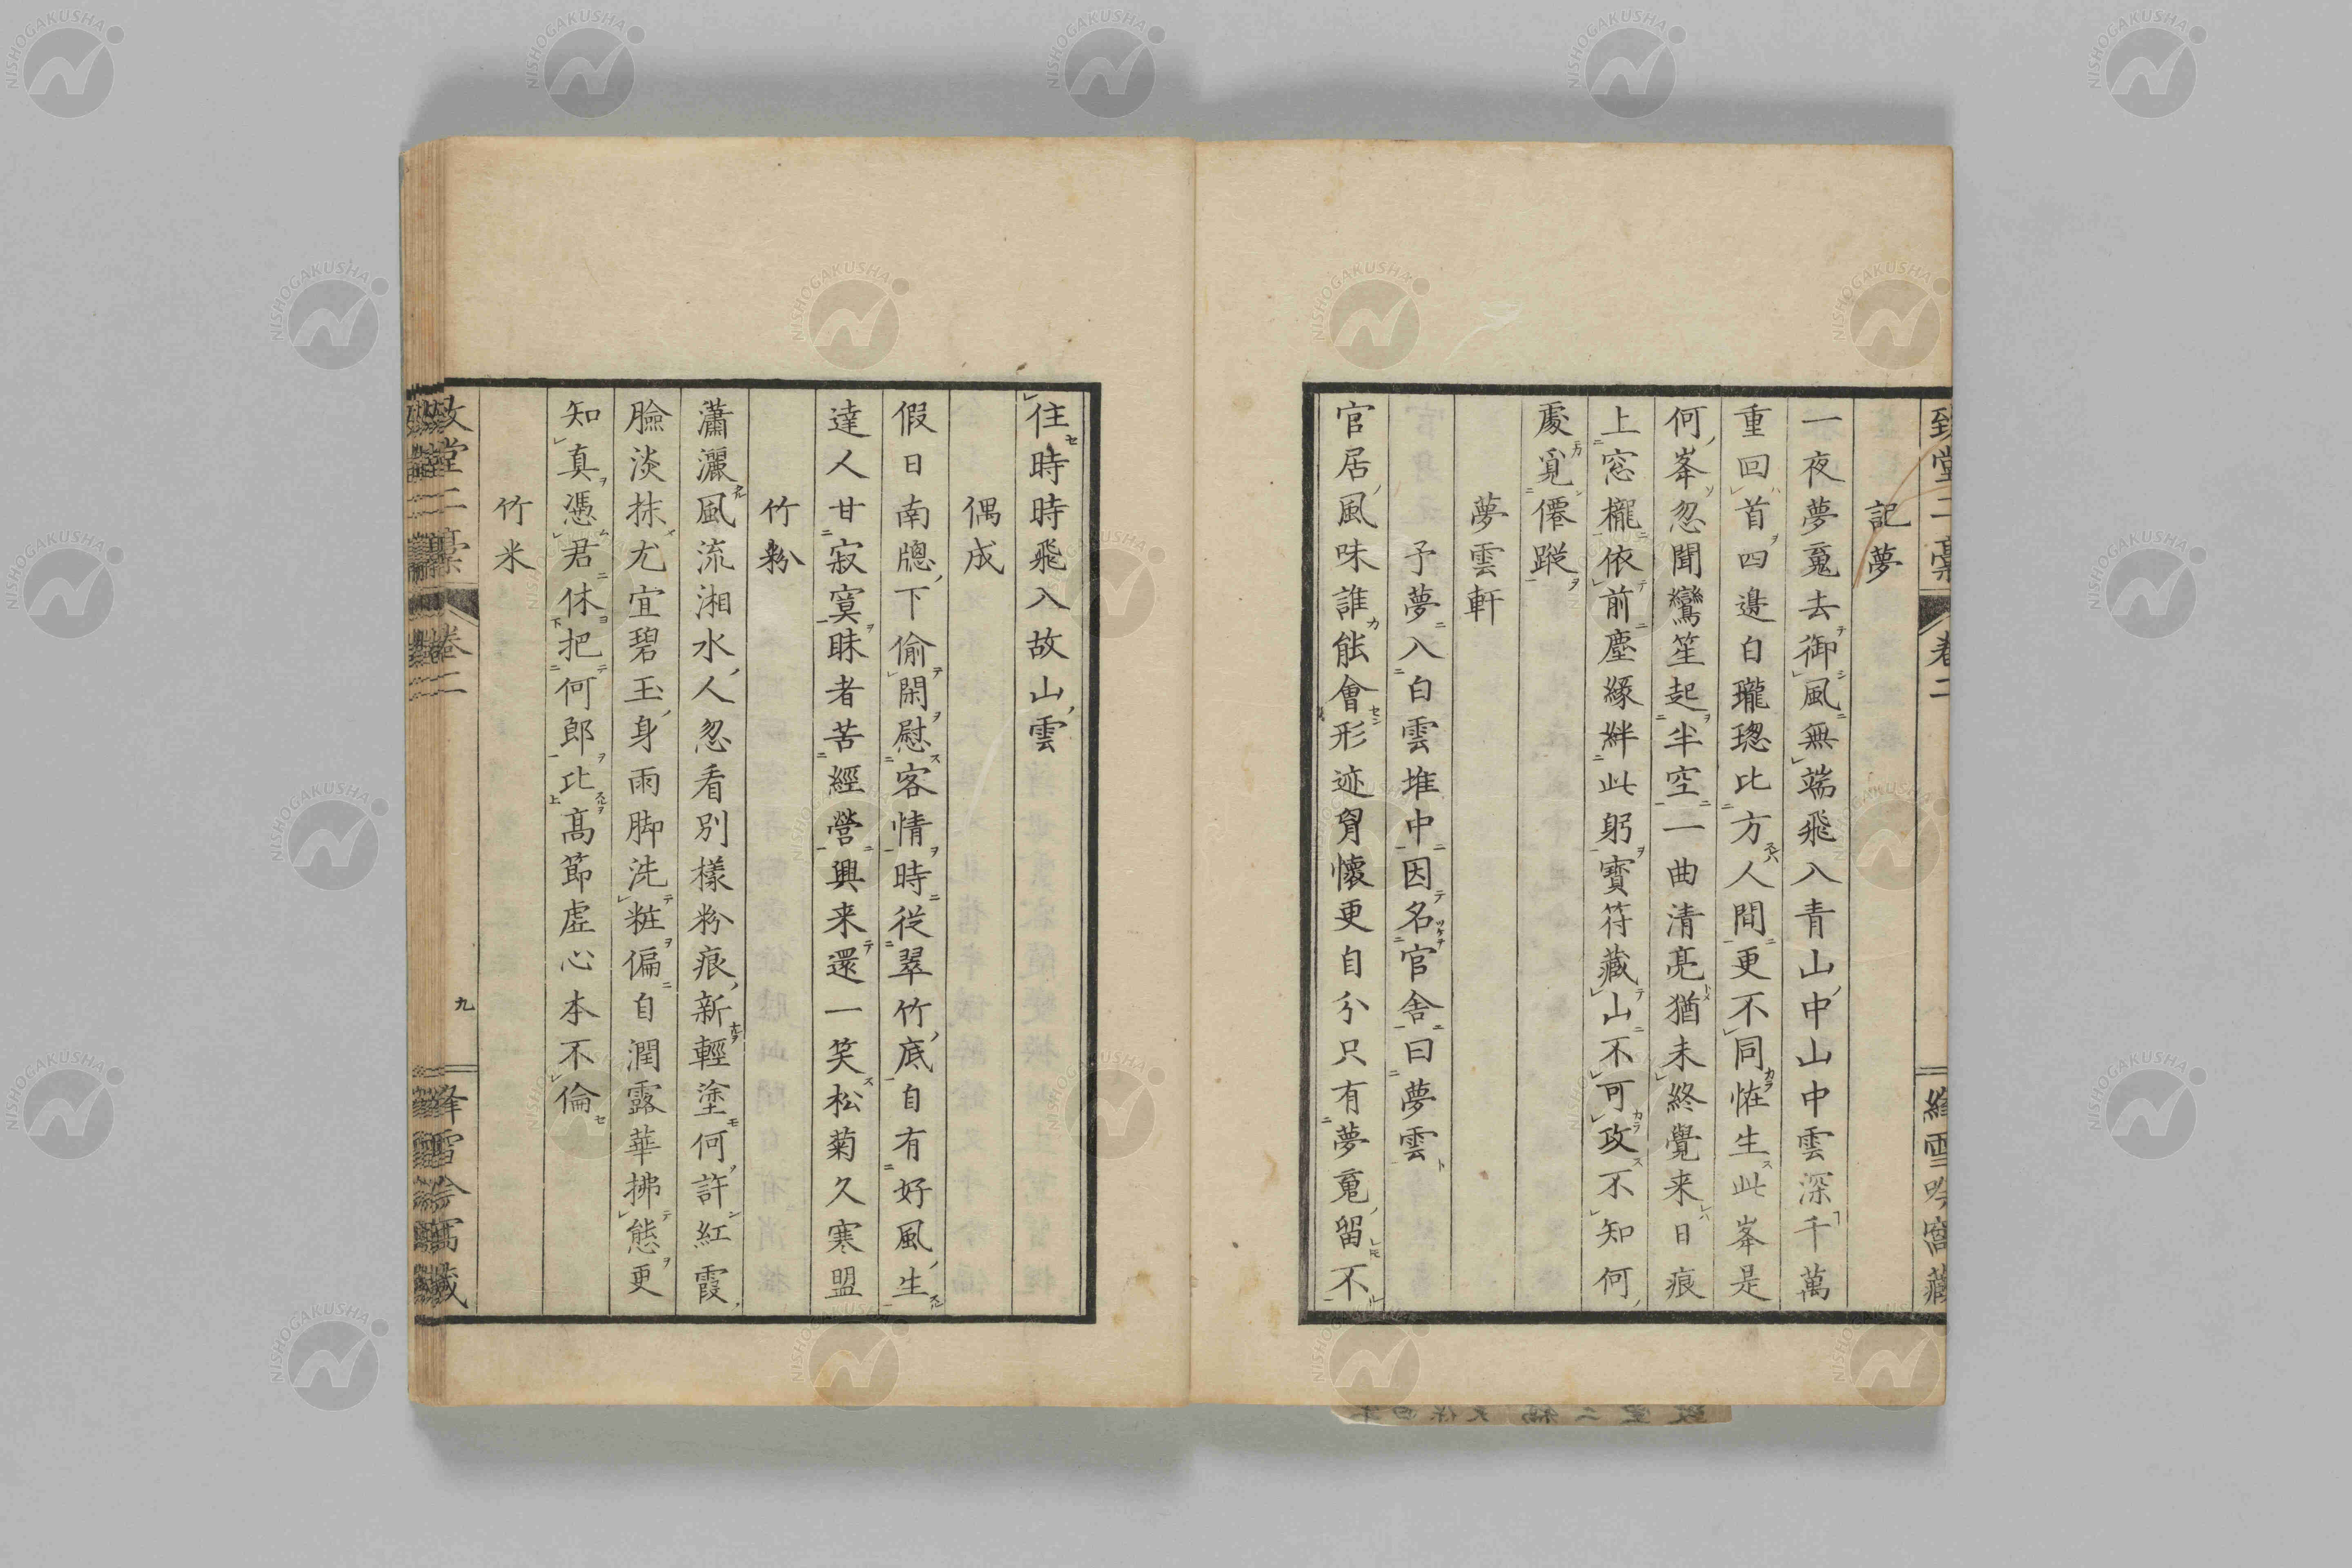 致堂二稾 卷二 絳雪吟窩藏
記夢
一夜夢䰟去御風無端飛入青山中山中雲深千萬
重回首四邊白瓏璁比方人間更不同恠生此峯是
何峯忽聞鸞笙起半空一曲清亮猶未終覺来日痕
上窓櫳依前塵緣絆此躬寶符藏山不可攻不知何
處覓僊蹤
夢雲軒
予夢入白雲堆中因名官舍曰夢雲
官居風味誰能會形迹胷懷更自分只有夢䰟留不
住時時飛入故山雲
偶成
假日南牕下偷閑慰客情時従翠竹底自有好風生
達人甘寂寞昧者苦經營興来還一笑松菊久寒盟
竹粉
瀟灑風流湘水人忽看別樣粉痕新輕塗何許紅霞
臉淡抹尤宜碧玉身雨脚洗粧偏自潤露華拂態更
知真憑君休把何郎比髙節虛心本不倫
竹米
致堂二稾 卷二 九 絳雪吟窩藏
致堂二稿 天保四年
NISHOGAKUSHA